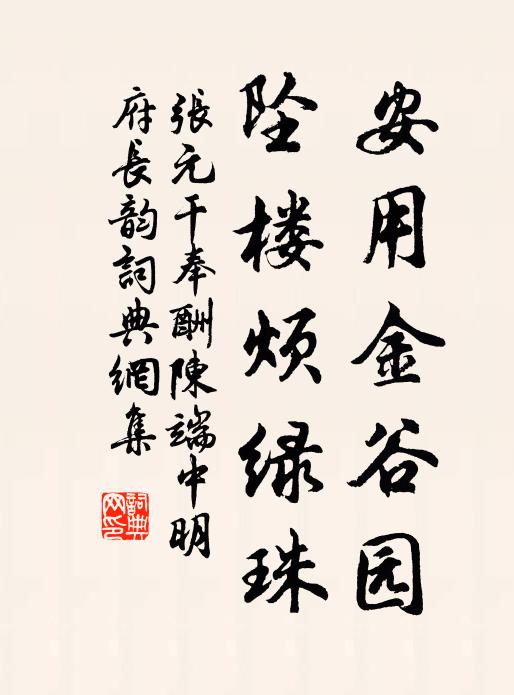 安用金谷园
坠楼烦绿珠
張元干奉酬陳端中明
府長韵詞典網集
詞典
网印